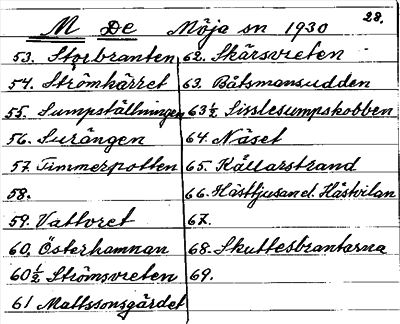 28.
M De Möja sn 1930
53. Storbranten
54. Strömkärret
55. Sumpställningen
56. Surängen
57. Timmerpotten
58.
59. Vattvret
60. Österhamnan
60½ Strömsvreten
61 Mattssonsgärdet
62. Skärsvreten
63. Båtsmansudden
63½ Sisslesumpskobben
64. Näset
65. Källarstrand
66. Hästhusand. Hästvilan
67.
68. Skuttesbrantarna
69.